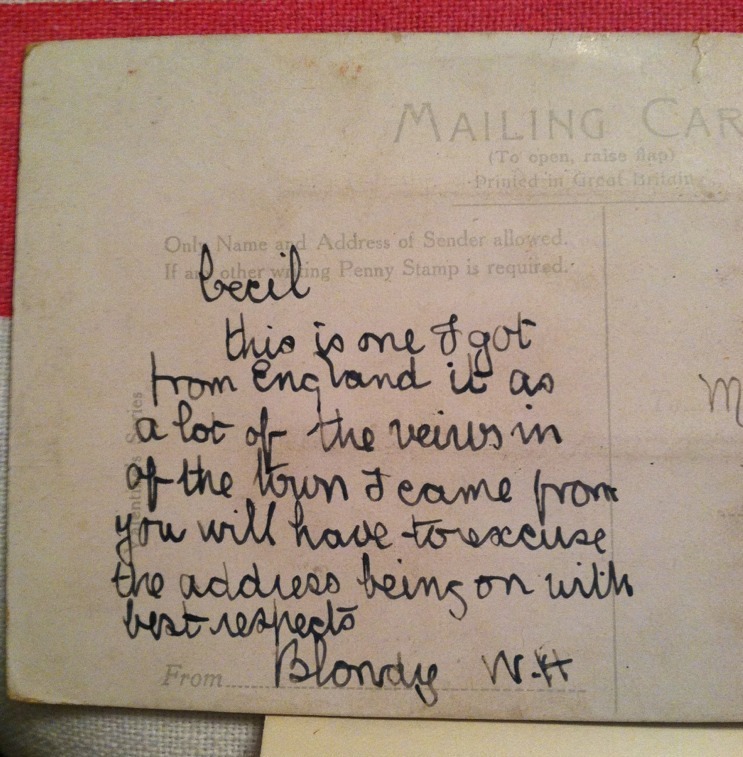 MAILING CAR
(To open, raise flap)
Printed in Great Britain
Only Name and Address of Sender allowed.
If any other writing Penny Stamp is required.
Cecil
this is one I got
from England it as
a lot of the veiws in
of the town I came from
you will have to excuse
the address being on with
best respects
From Blondy W.H
To
M
Series